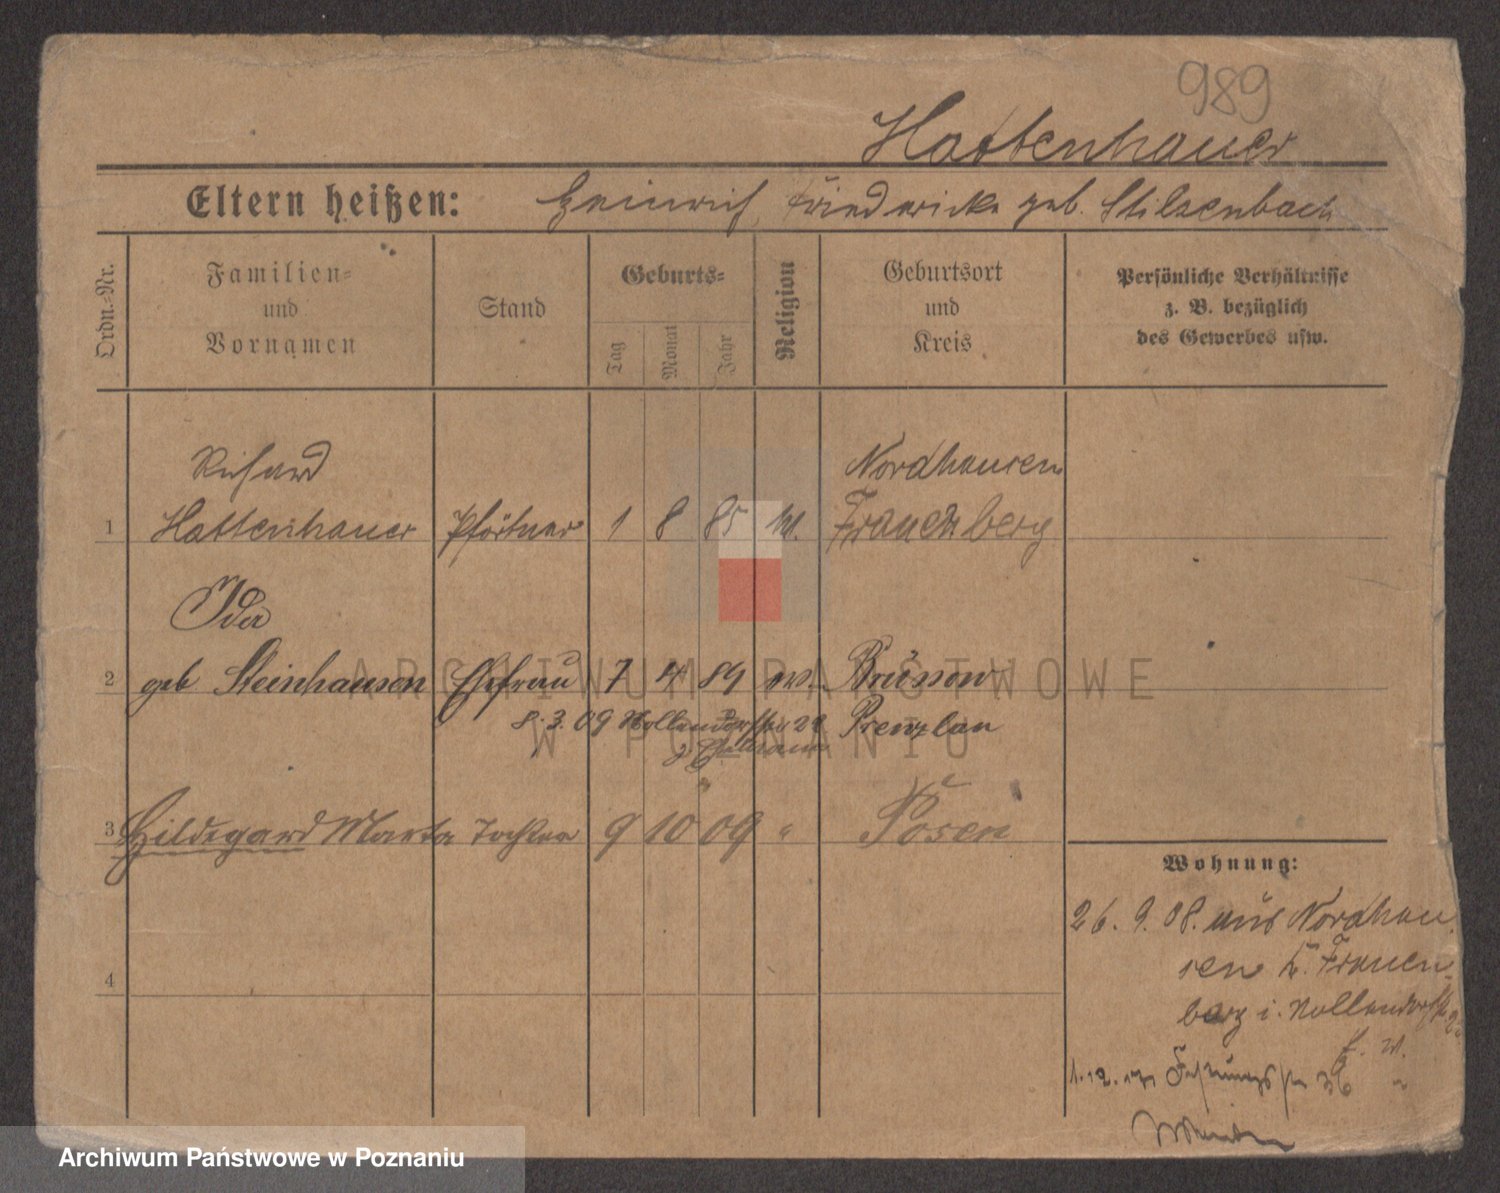 989
Hattenhauer
Eltern heißen: Heinrich, Friedericke geb. Stilzenbach
Ordn.-Nr. Familien- und Vornamen Stand Geburts- Tag Monat Jahr Religion Geburtsort und Kreis Persönliche Verhältnisse z. B. bezüglich des Gewerbes usw.
Richard Nordhausen
1 Hattenhauer Pförtner 1 8 85 Frauenberg
Ida
2 geb Steinhausen Ehefrau 7 4 89 ev. Brüssow
8. 3. 09 Nollendorfstr 28 Prenzlau
3 Hildegard Marta Tochter 9 10 09 " Posen
Wohnung:
26. 9. 08. aus Nordhau
sen K. Frauen-
berg i. Nollendorfstr
4
1. 12. Festungsstr 36 "
ARCHIWUM PAŃSTWOWE
W POZNANIU
Archiwum Państwowe w Poznaniu